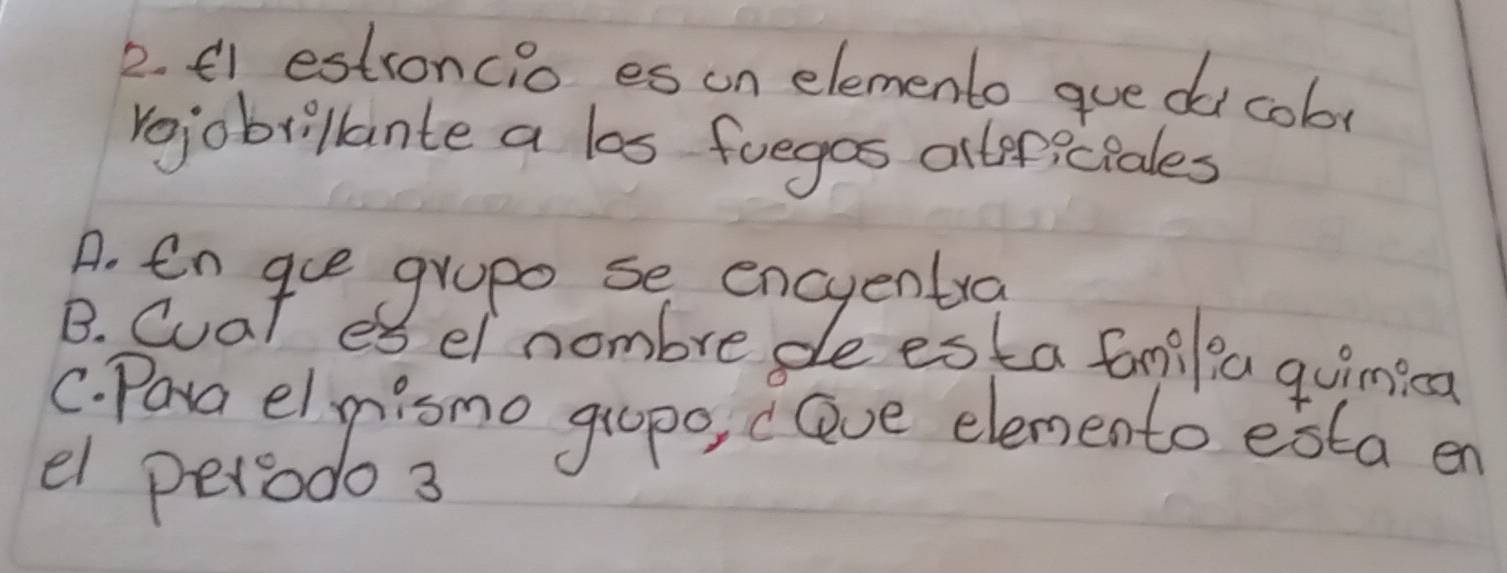 2. El estroncio es un elemento que da color
rojo brillante a los fuegos artificiales
A. En que grupo se encuentra
B. Cual es el nombre de esta familia quimica
C. Para el mismo grupo, ¿Que elemento esta en
el periodo 3